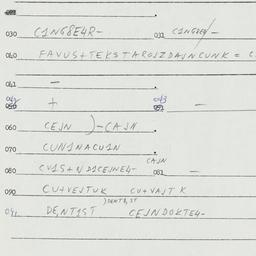 030 C1NG8E4R- 031 C1NG8E4-
040 FAVUS+TEKSTAROJZDAJNCUNK = C
041 -
042 + 043 -
060 CEJN )-CAJN
070 CUN1NACU1N
080 CV1S+N D1CEJNE4- CAJN 081 -
090 CU+VEJTUK CU+VAJT K
091 DE,NT1ST )DENT8,ST CEJNDOKTE4-